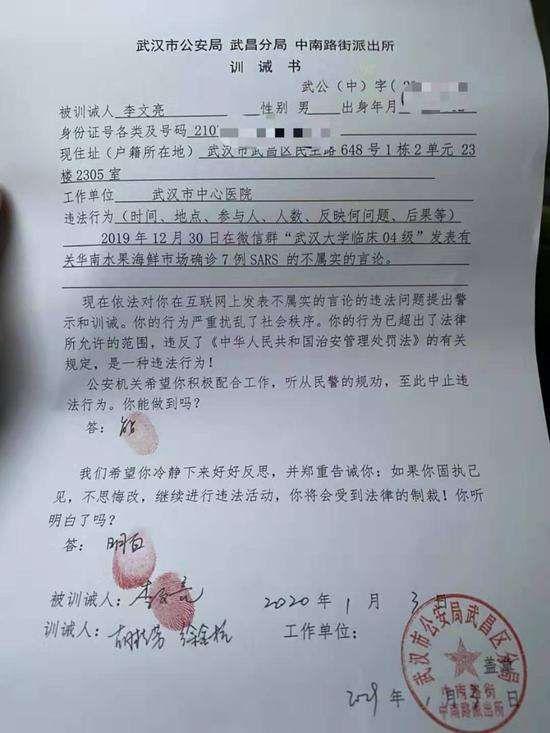 武汉市公安局 武昌分局 中南路街派出所
训 诫 书
武公（中）字（
被训诫人 李文亮 性别 男 出身年月
身份证号各类及号码 210
现住址（户籍所在地） 武汉市武昌区民主路 648 号 1 栋 2 单元 23
楼 2305 室
工作单位 武汉市中心医院
违法行为（时间、地点、参与人、人数、反映何问题、后果等）
2019 年 12 月 30 日在微信群“武汉大学临床 04 级”发表有
关华南水果海鲜市场确诊 7 例 SARS 的不属实的言论。
现在依法对你在互联网上发表不属实的言论的违法问题提出警
示和训诫。你的行为严重扰乱了社会秩序。你的行为已超出了法律
所允许的范围，违反了《中华人民共和国治安管理处罚法》的有关
规定，是一种违法行为！
公安机关希望你积极配合工作，听从民警的规劝，至此中止违
法行为。你能做到吗？
答：能
我们希望你冷静下来好好反思，并郑重告诫你：如果你固执己
见，不思悔改，继续进行违法活动，你将会受到法律的制裁！你听
明白了吗？
答：明白
被训诫人：李文亮 2020 年 1 月 3 日
训诫人： 工作单位：
武汉市公安局武昌区分局
盖章
中南路街
中南路派出所
年 1 月 日